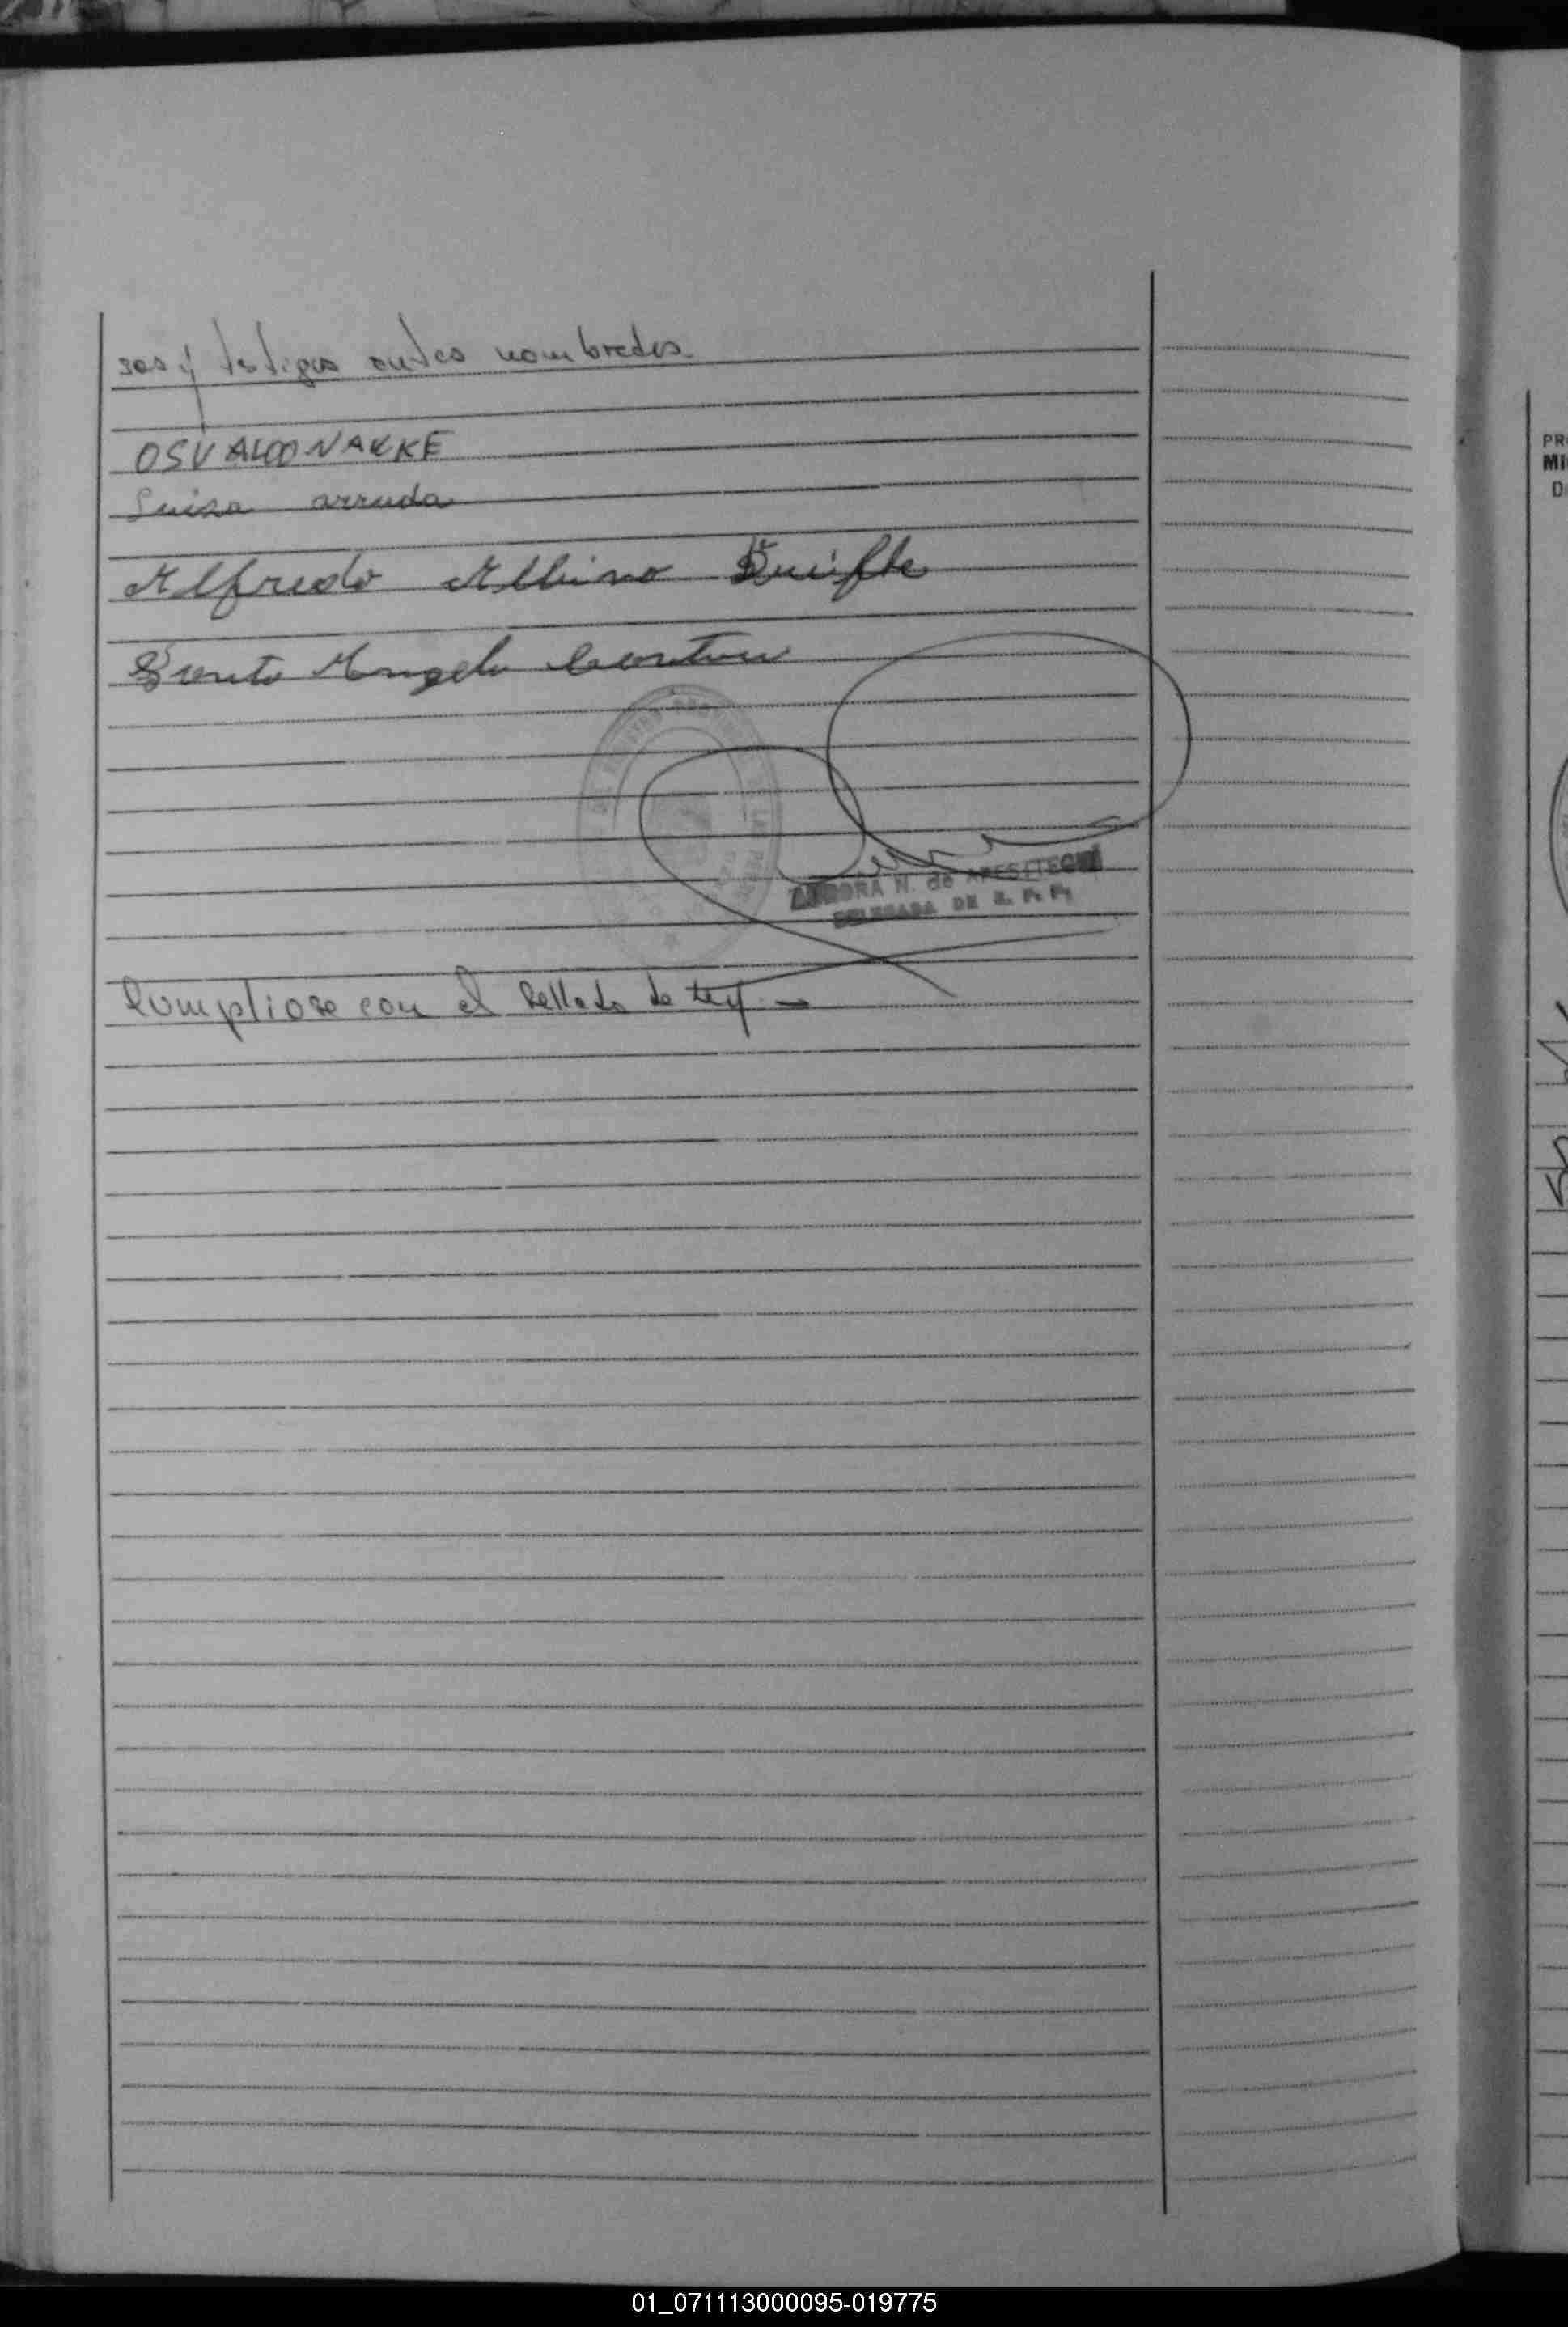 sos y testigos antes nombrados.
OSVALDO NAKKE
Luisa arruda
Alfredo Albino
Angela
AURORA N. de APESITEGUI
DELEGADA DE E. P. P.
Cumpliose con el Sellado de Ley.
PR
MI
D
01_071113000095-019775